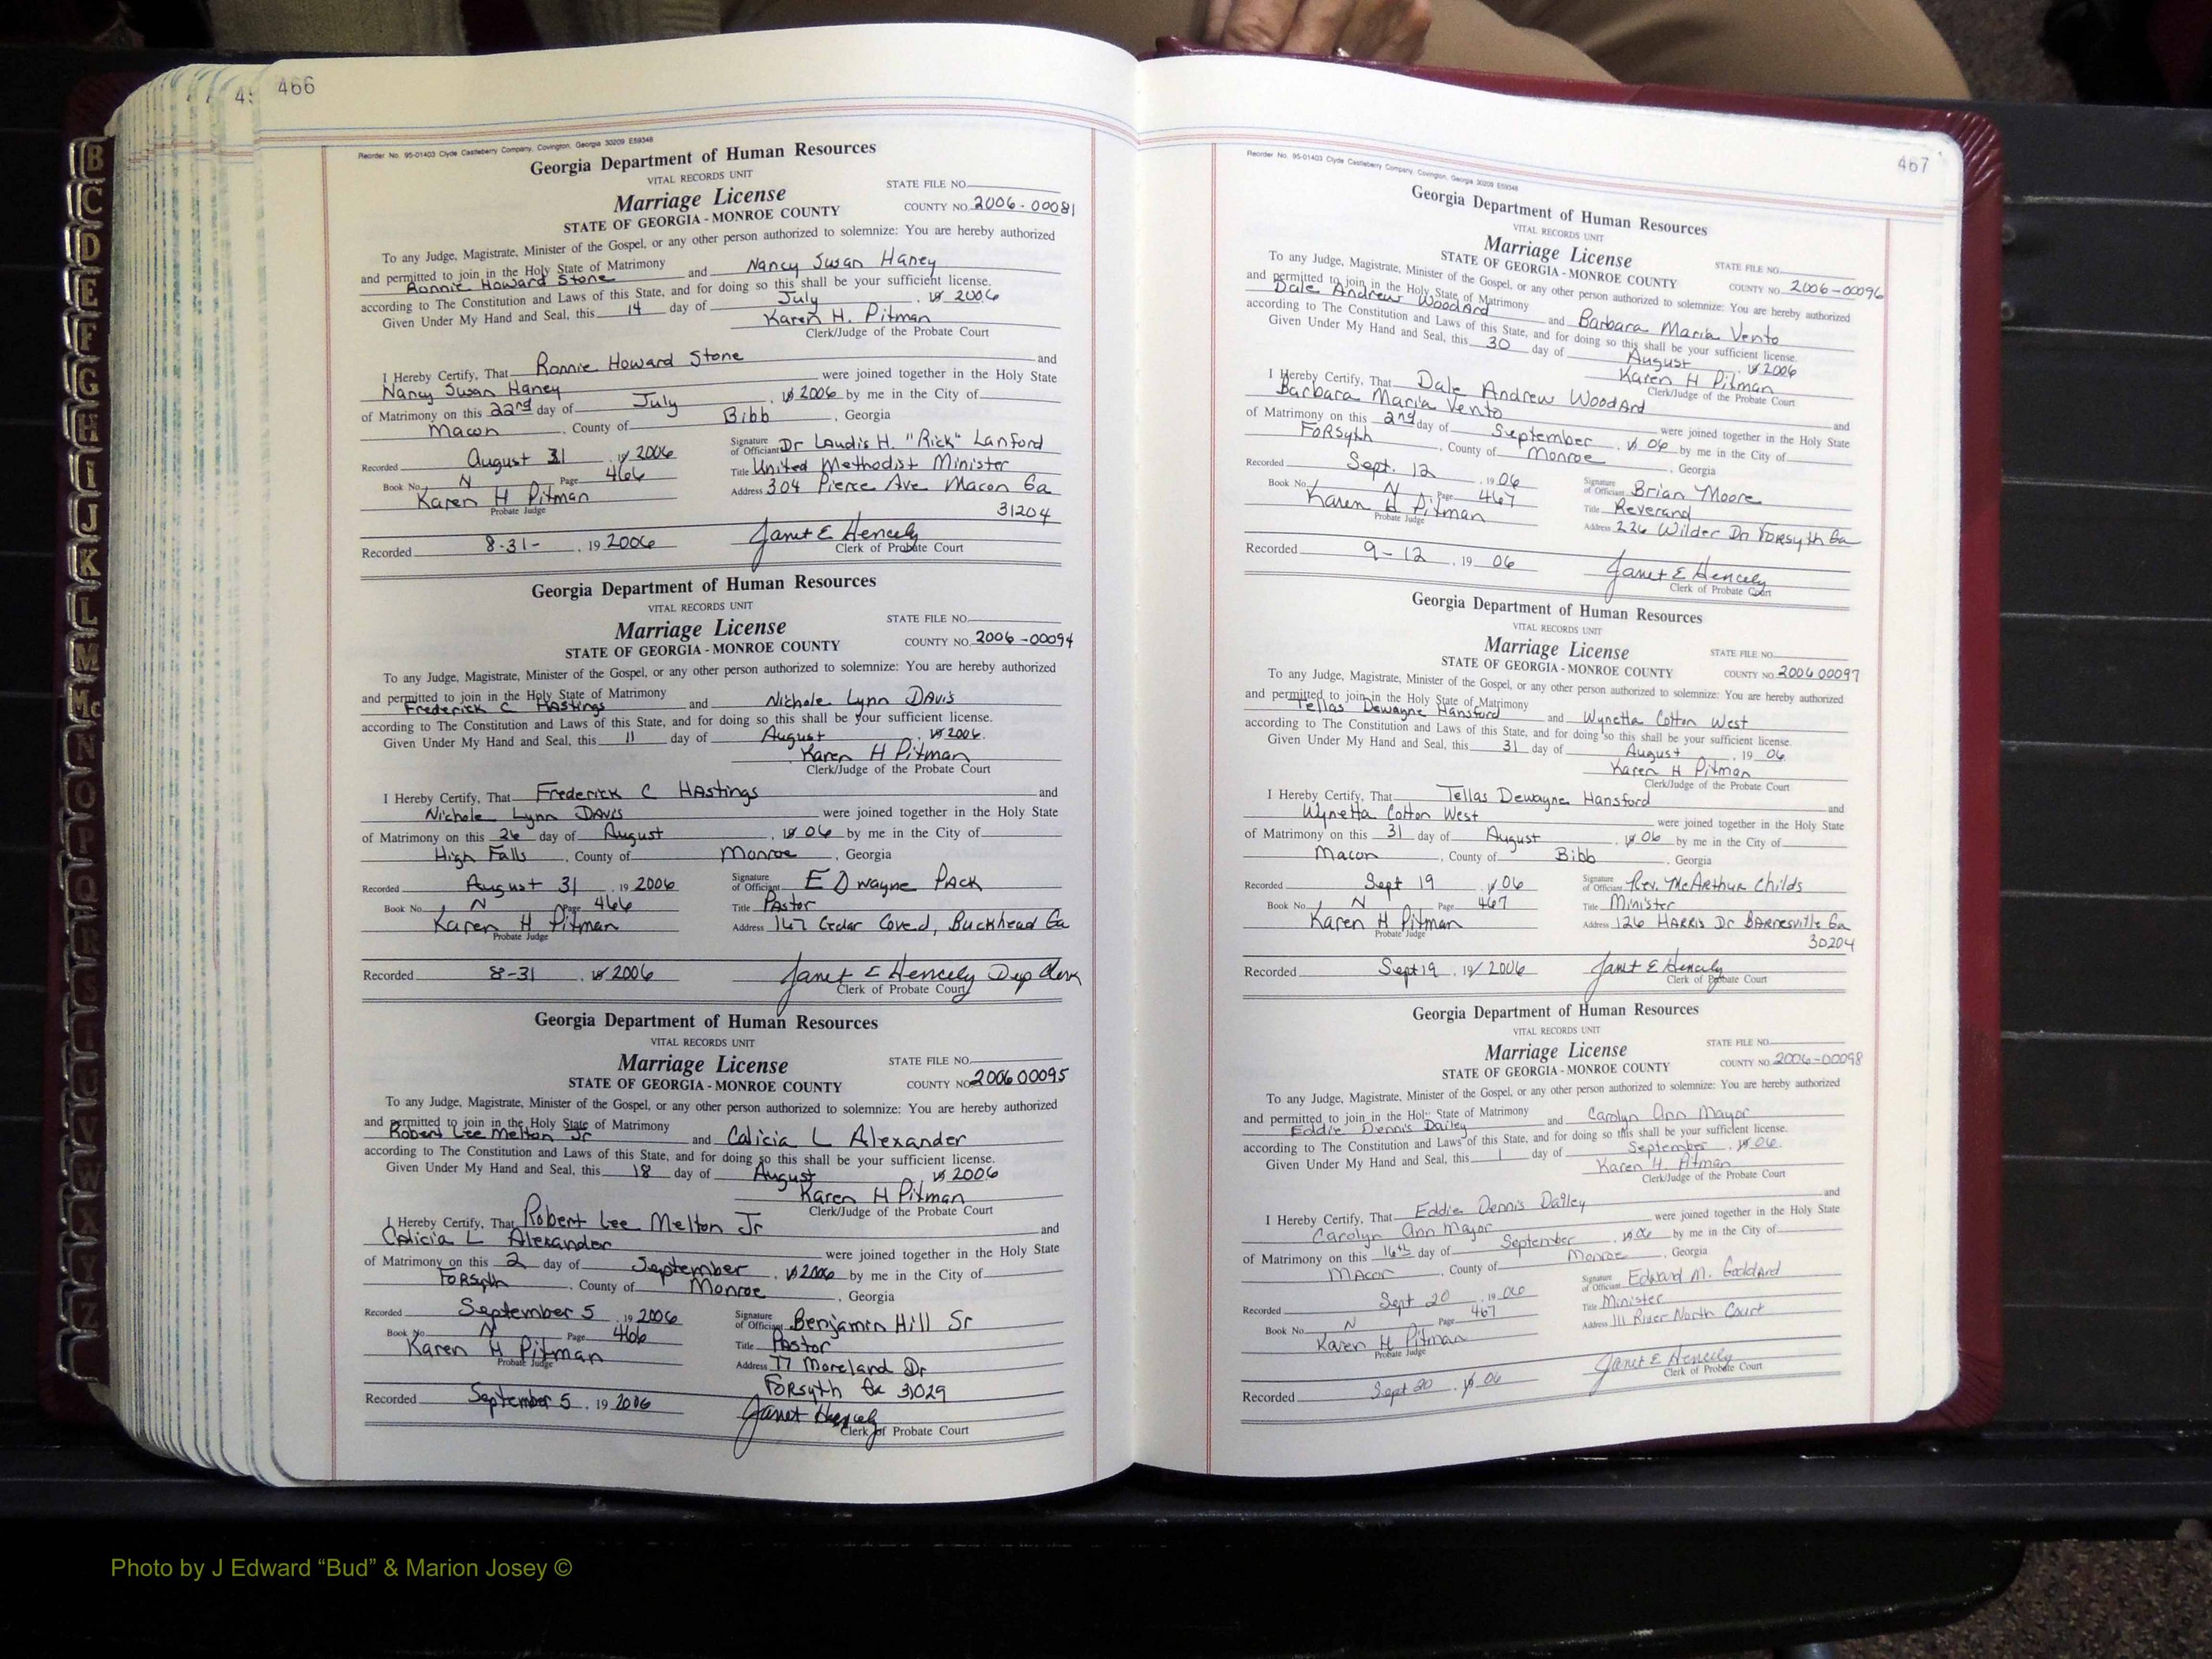 466
Reorder No. 95-01403 Clyde Castleberry Company, Covington, Georgia 30209 E59348
Georgia Department of Human Resources
VITAL RECORDS UNIT
Marriage License
STATE FILE NO.
STATE OF GEORGIA - MONROE COUNTY
COUNTY NO. 2006-00081
To any Judge, Magistrate, Minister of the Gospel, or any other person authorized to solemnize: You are hereby authorized
and permitted to join in the Holy State of Matrimony
Ronnie Howard Stone and Nancy Susan Haney
according to The Constitution and Laws of this State, and for doing so this shall be your sufficient license.
Given Under My Hand and Seal, this 14 day of July, 19 2006
Karen H. Pitman
Clerk/Judge of the Probate Court
I Hereby Certify, That Ronnie Howard Stone and
Nancy Susan Haney were joined together in the Holy State
of Matrimony on this 22nd day of July, 19 2006 by me in the City of
Macon, County of Bibb, Georgia
Recorded August 31, 19 2006
Book No. N Page 466
Karen H Pitman
Probate Judge
Signature of Official Dr Laudis H. "Rick" Lanford
Title United Methodist Minister
Address 304 Pierce Ave Macon Ga
31204
Recorded 8-31-, 19 2006
Janet E Hencely
Clerk of Probate Court
Georgia Department of Human Resources
VITAL RECORDS UNIT
Marriage License
STATE FILE NO.
STATE OF GEORGIA - MONROE COUNTY
COUNTY NO. 2006-00094
To any Judge, Magistrate, Minister of the Gospel, or any other person authorized to solemnize: You are hereby authorized
and permitted to join in the Holy State of Matrimony
Frederick C Hastings and Nichole Lynn Davis
according to The Constitution and Laws of this State, and for doing so this shall be your sufficient license.
Given Under My Hand and Seal, this 11 day of August, 19 2006.
Karen H Pitman
Clerk/Judge of the Probate Court
I Hereby Certify, That Frederick C Hastings and
Nichole Lynn Davis were joined together in the Holy State
of Matrimony on this 26 day of August, 19 06 by me in the City of
High Falls, County of Monroe, Georgia
Recorded August 31, 19 2006
Book No. N Page 466
Karen H Pitman
Probate Judge
Signature of Official E Dwayne Pack
Title Pastor
Address 167 Cedar Cove d, Buckhead Ga
Recorded 8-31, 19 2006
Janet E Hencely Dep Clerk
Clerk of Probate Court
Georgia Department of Human Resources
VITAL RECORDS UNIT
Marriage License
STATE FILE NO.
STATE OF GEORGIA - MONROE COUNTY
COUNTY NO. 2006 00095
To any Judge, Magistrate, Minister of the Gospel, or any other person authorized to solemnize: You are hereby authorized
and permitted to join in the Holy State of Matrimony
Robert Lee Melton Jr and Calicia L Alexander
according to The Constitution and Laws of this State, and for doing so this shall be your sufficient license.
Given Under My Hand and Seal, this 18 day of August 19 2006
Karen H Pitman
Clerk/Judge of the Probate Court
I Hereby Certify, That Robert Lee Melton Jr and
Calicia L Alexander were joined together in the Holy State
of Matrimony on this 2 day of September, 19 2006 by me in the City of
Forsyth, County of Monroe, Georgia
Recorded September 5, 19 2006
Book No. N Page 466
Karen H Pitman
Probate Judge
Signature of Official Benjamin Hill Sr
Title Pastor
Address 77 Moreland Dr
Forsyth Ga 31029
Recorded September 5, 19 2006
Janet Hencely
Clerk of Probate Court
467
Reorder No. 95-01403 Clyde Castleberry Company, Covington, Georgia 30209 E59348
Georgia Department of Human Resources
VITAL RECORDS UNIT
Marriage License
STATE FILE NO.
STATE OF GEORGIA - MONROE COUNTY
COUNTY NO. 2006-00096
To any Judge, Magistrate, Minister of the Gospel, or any other person authorized to solemnize: You are hereby authorized
and permitted to join in the Holy State of Matrimony
Dale Andrew Woodard and Barbara Maria Vento
according to The Constitution and Laws of this State, and for doing so this shall be your sufficient license.
Given Under My Hand and Seal, this 30 day of August, 19 2006
Karen H Pitman
Clerk/Judge of the Probate Court
I Hereby Certify, That Dale Andrew Woodard and
Barbara Maria Vento were joined together in the Holy State
of Matrimony on this 2nd day of September, 19 06 by me in the City of
Forsyth, County of Monroe, Georgia
Recorded Sept. 12, 19 06
Book No. N Page 467
Karen H Pitman
Probate Judge
Signature of Official Brian Moore
Title Reverand
Address 226 Wilder Dr Forsyth Ga
Recorded 9-12, 19 06
Janet E Hencely
Clerk of Probate Court
Georgia Department of Human Resources
VITAL RECORDS UNIT
Marriage License
STATE FILE NO.
STATE OF GEORGIA - MONROE COUNTY
COUNTY NO. 2006 00097
To any Judge, Magistrate, Minister of the Gospel, or any other person authorized to solemnize: You are hereby authorized
and permitted to join in the Holy State of Matrimony
Tellas Dewayne Hansford and Wynetta Cotton West
according to The Constitution and Laws of this State, and for doing so this shall be your sufficient license.
Given Under My Hand and Seal, this 31 day of August, 19 06
Karen H Pitman
Clerk/Judge of the Probate Court
I Hereby Certify, That Tellas Dewayne Hansford and
Wynetta Cotton West were joined together in the Holy State
of Matrimony on this 31 day of August, 19 06 by me in the City of
Macon, County of Bibb, Georgia
Recorded Sept 19, 19 06
Book No. N Page 467
Karen H Pitman
Probate Judge
Signature of Official Rev. McArthur Childs
Title Minister
Address 126 Harris Dr Barnesville Ga
30204
Recorded Sept 19, 19 2006
Janet E Hencely
Clerk of Probate Court
Georgia Department of Human Resources
VITAL RECORDS UNIT
Marriage License
STATE FILE NO.
STATE OF GEORGIA - MONROE COUNTY
COUNTY NO. 2006-00098
To any Judge, Magistrate, Minister of the Gospel, or any other person authorized to solemnize: You are hereby authorized
and permitted to join in the Holy State of Matrimony
Eddie Dennis Dailey and Carolyn Ann Mayor
according to The Constitution and Laws of this State, and for doing so this shall be your sufficient license.
Given Under My Hand and Seal, this 1 day of September, 19 06.
Karen H. Pitman
Clerk/Judge of the Probate Court
I Hereby Certify, That Eddie Dennis Dailey and
Carolyn Ann Mayor were joined together in the Holy State
of Matrimony on this 16th day of September, 19 06 by me in the City of
Macon, County of Monroe, Georgia
Recorded Sept 20, 19 06
Book No. N Page 467
Karen H Pitman
Probate Judge
Signature of Official Edward M. Goddard
Title Minister
Address 111 River North Court
Recorded Sept 20, 19 06
Janet E Hencely
Clerk of Probate Court
B
C
D
E
F
G
H
I
J
K
L
M
Mc
N
O
P
Q
R
S
T
U
V
W
X
Y
Z
Photo by J Edward “Bud” & Marion Josey ©